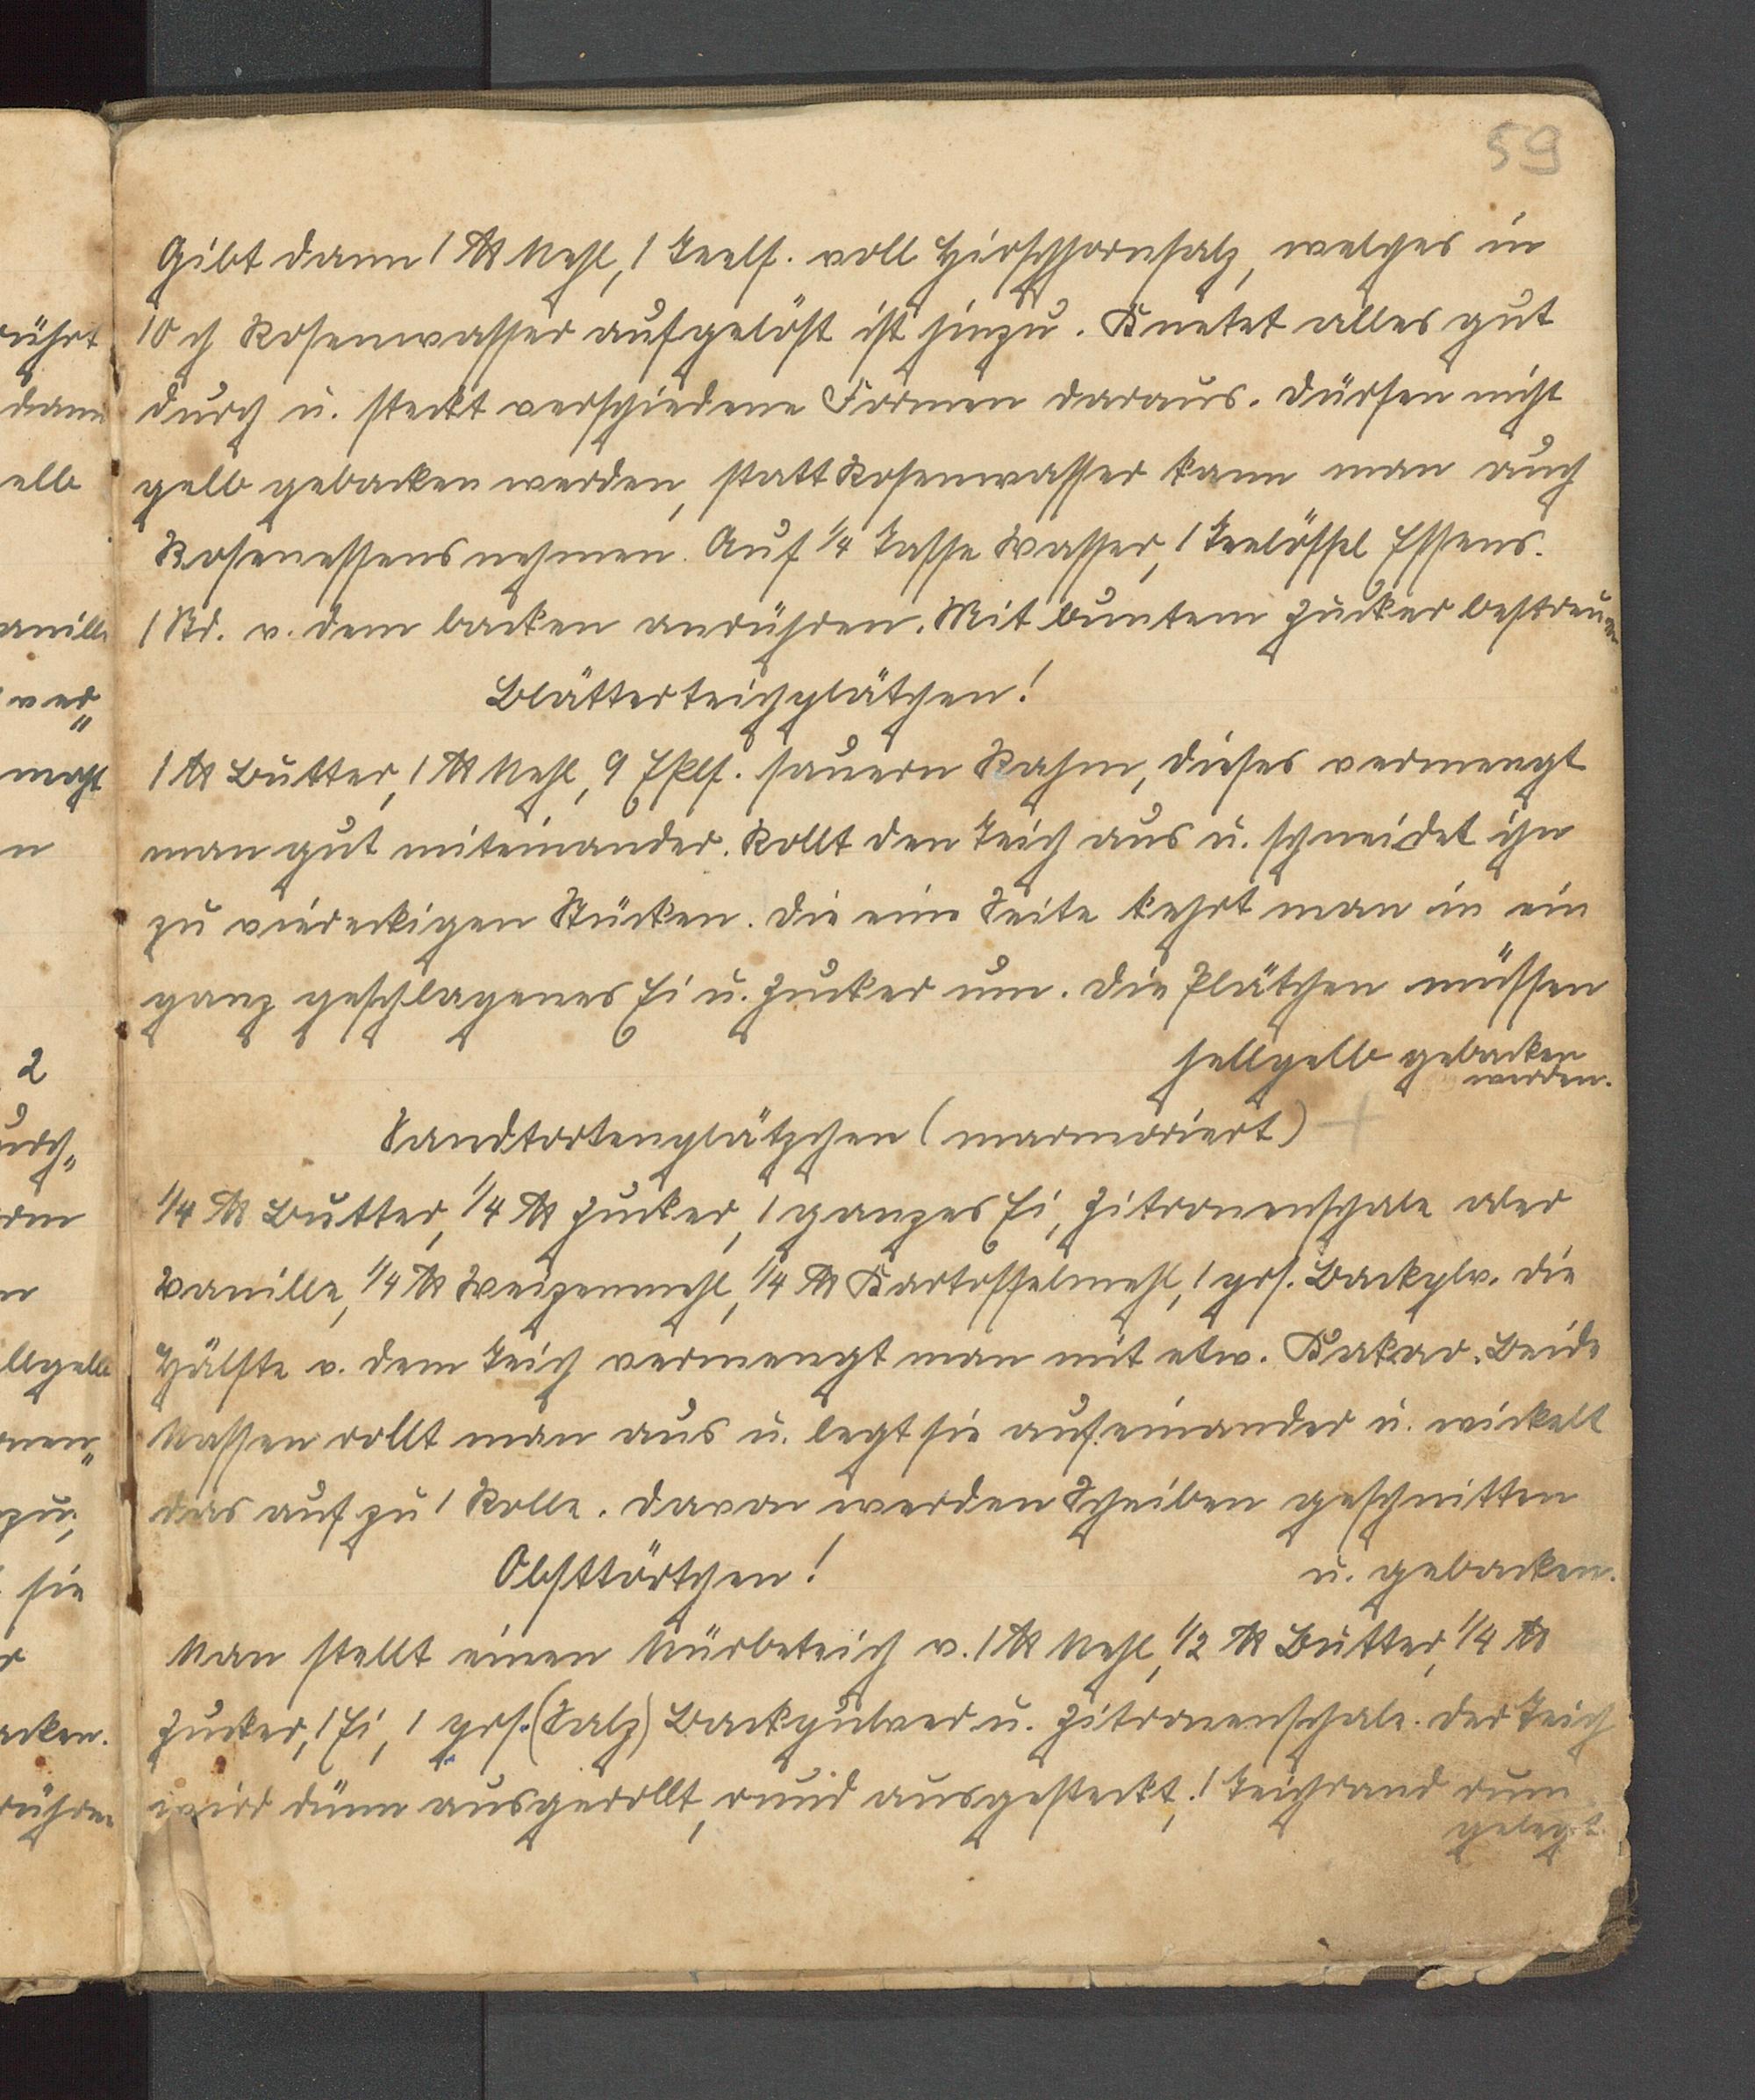 59
Gibt dann 1 ℔ Mehl, 1 Teelf. voll Hirschhornsalz, welches in
10 ch Rosenwasser aufgelöst ist hinzu. Knetet alles gut
durch u. steckt verschiedene Formen daraus. Dürfen nicht
gelb gebacken werden, statt Rosenwasser kann man auch
Rosenessens nehmen. Auf 1/4 Tasse Wasser, 1 Teelöffel Essens.
1 Std. v. dem backen anrühren. Mit buntem Zucker bestreuen
Blätterteichplätchen!
1 ℔ Butter, 1 ℔ Mehl, 9 Eßlf. sauern Rahm, dieses vermengt
man gut miteinander. Rollt den Teich aus u. schneidet ihn
zu viereckigen Stücken. Die eine Seite kehrt man in ein
ganz geschlagenes Ei u. Zucker um. Die Plätchen müssen
hellgelb gebacken
werden.
Sandtortenplätzchen (marmoriert) +
1/4 ℔ Butter, 1/4 ℔ Zucker, 1 ganzes Ei, Zitronenschale oder
Vanille, 1/4 ℔ Weizenmehl, 1/4 ℔ Kartoffelmehl, 1 prs. Backplv. Die
Hälfte v. dem Teich vermengt man mit etw. Kakao. Beide
Massen rollt man aus u. legt sie aufeinander u. wickelt
das auf zu 1 Rolle. Davon werden Scheiben geschnitten
u. gebacken.
Obsttörtchen!
Man stellt einen Mürbeteich v. 1 ℔ Mehl, 1/2 ℔ Butter, 1/4 ℔
Zucker, 1 Ei, 1 prs. (Salz) Backpulver u. Zitronenschale. Der Teich
wird dünn ausgerollt, rund ausgesteckt, 1 Teichrand rum
gelegt